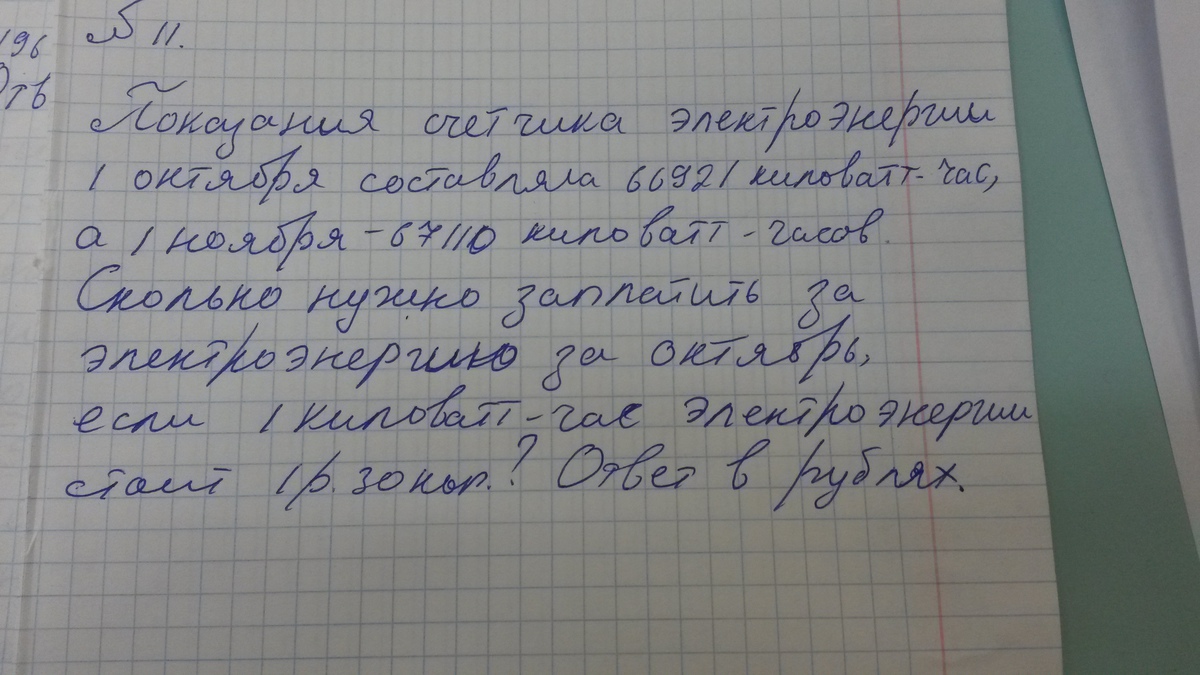 196
Отв
№ 11.
Показания счетчика электроэнергии
1 октября составляла 66921 киловатт-час,
а 1 ноября - 67110 киловатт-часов.
Сколько нужно заплатить за
электроэнергию за октябрь,
если 1 киловатт-час электроэнергии
стоит 1р. 30коп.? Ответ в рублях.